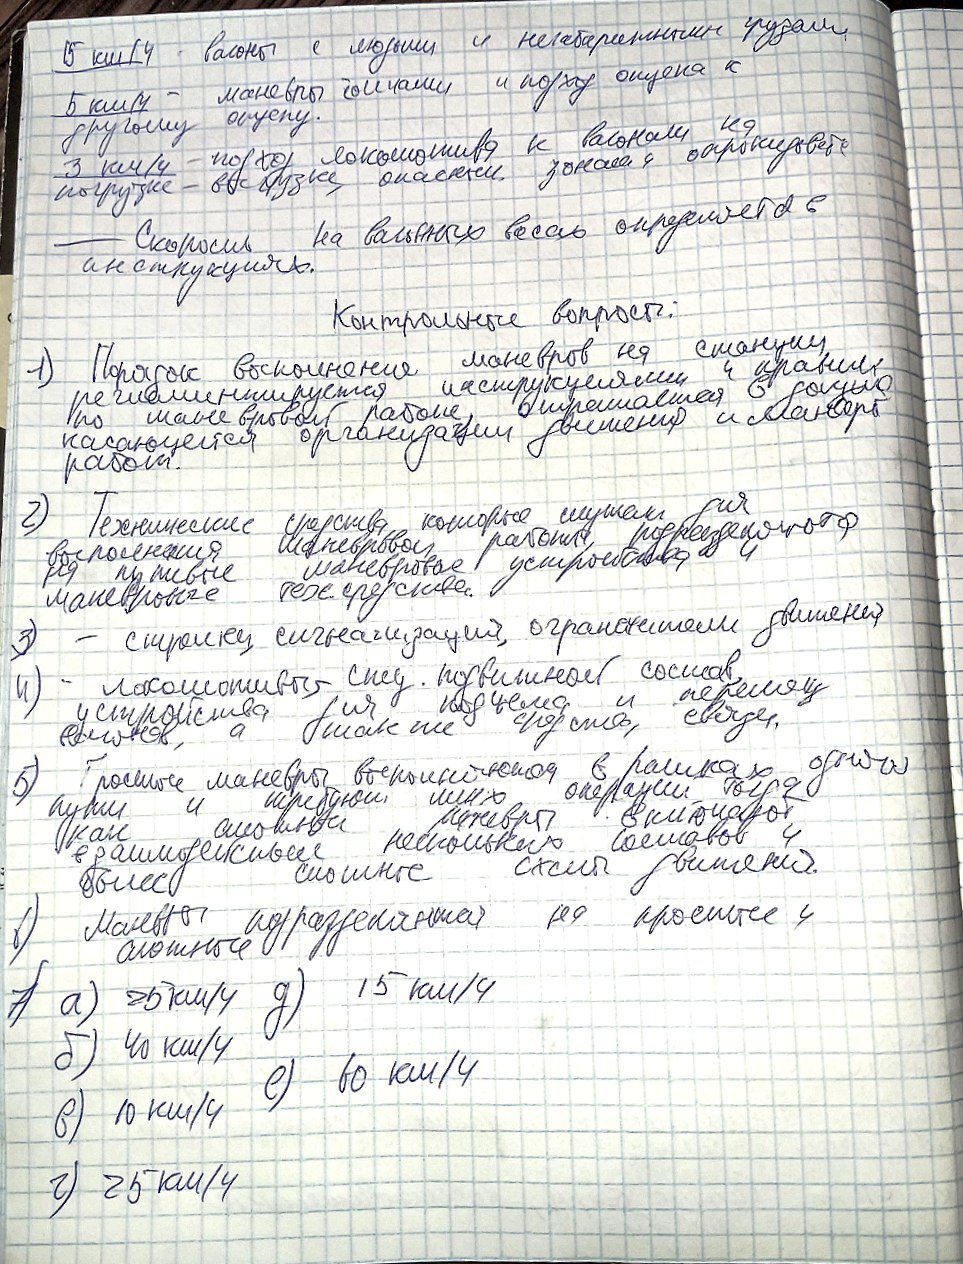 15 км/ч - вагоны с людьми и негабаритными грузами,
5 км/ч - маневры толчками и подход отцепа к
другому отцепу.
3 км/ч - подход локомотива к вагонам на
погрузке - выгрузке, опасным зонам и опрокидыват.
Скорость на вагонных весах определяется в
инструкциях.
Контрольные вопросы:
1) Порядок выполнения маневров на станции
регламинтируется инструкциями и правил
по маневровой работе, в
касающейся организации движения и маневр
работ.
2) Технические средства которые служат для
выполнения маневровой работы подразделяются
на путевые маневровые устройства и
маневровые тех. средства.
3) - стрелки, сигнализаций, ограничители движений
4) - локомотивы, спец. подвижной состав,
устройства для подъема и перемещ
вагонов, а также средства, связи.
5) Простые маневры выполняются в рамках одного
пути и требуют мин операций тогда
как сложный маневры включают
взаимодействие нескольких составов и
более сложные схемы движений.
6) Маневры подразделяются на простые и
сложные
7) а) 25 км/ч д) 15 км/ч
б) 40 км/ч
е) 60 км/ч
в) 10 км/ч
г) 25 км/ч